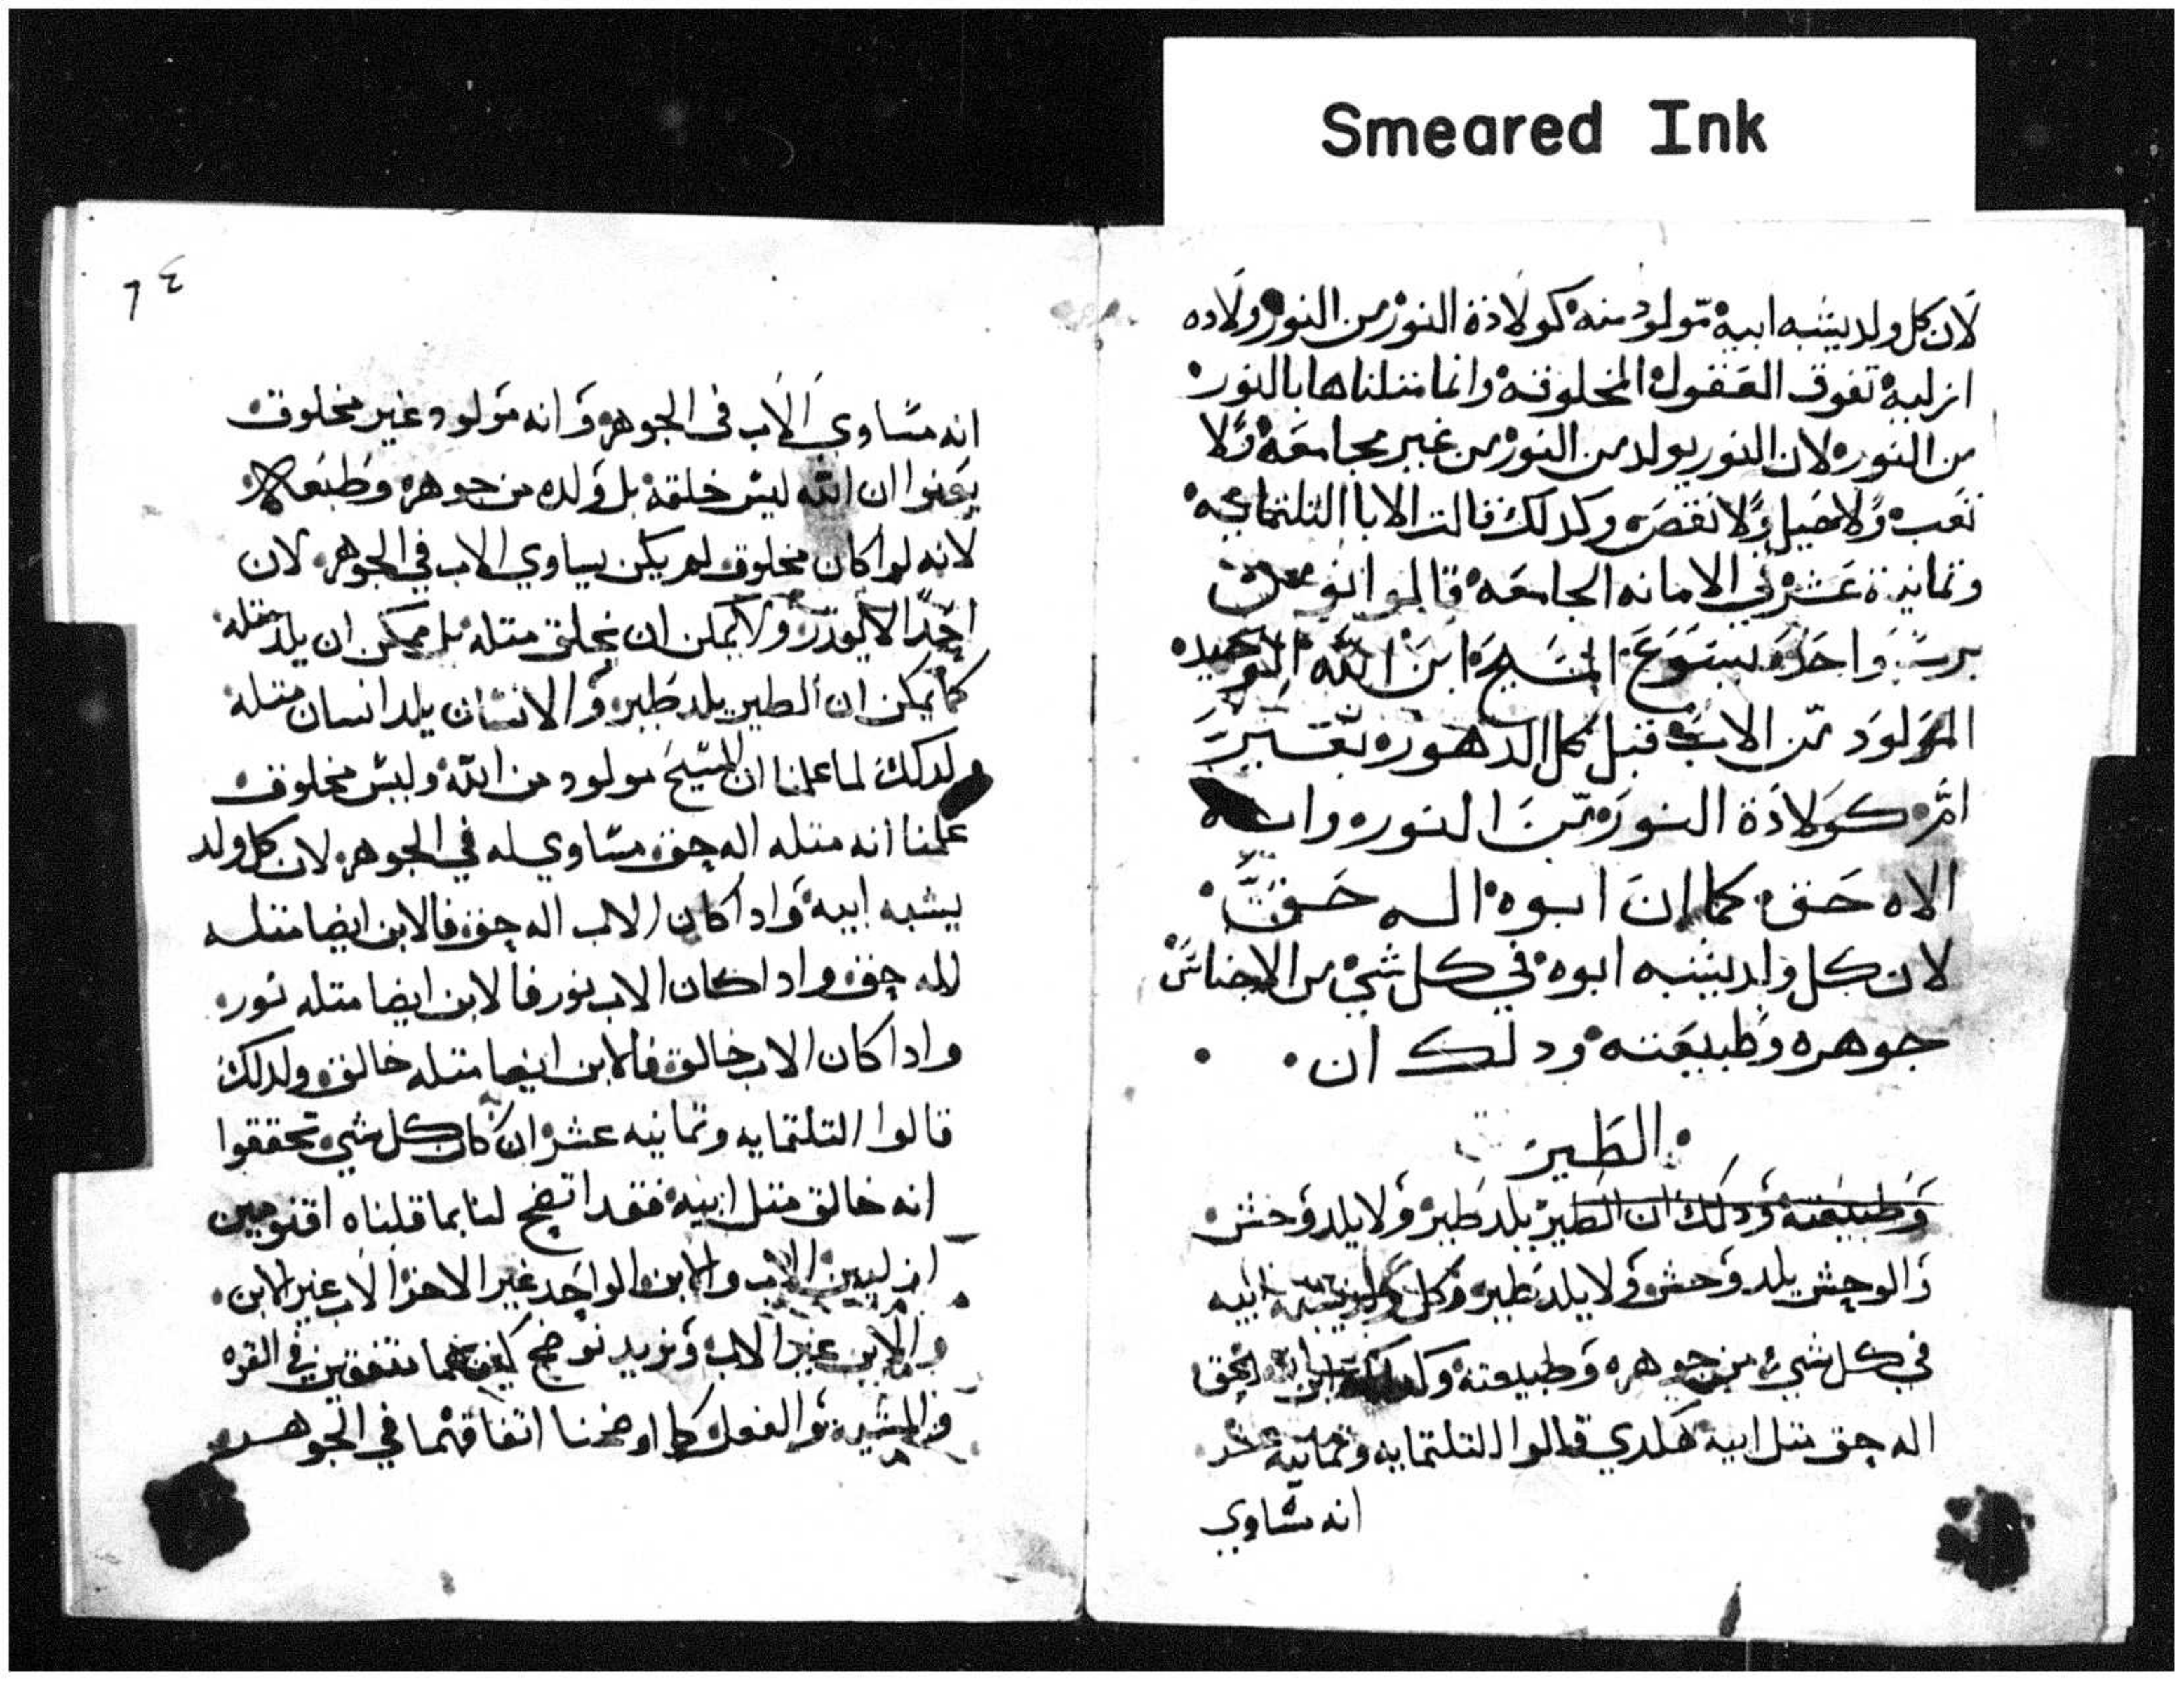 Smeared Ink
لان كل ولد يشبه ابيه مولود منه كولادة النور من النور ولاده
ازليه تفوق العقول المخلوقه وانما مثلناها بالنور
من النور لان النور يولد من النور من غير مجامعه ولا
تعب ولا حبل ولا نقص وكدلك قالت الابا التلتمايه
وتمانية عشر في الامانه الجامعه قالوا نومن
برب واحد يسوع المسيح ابن الله الوحيد
المولود من الاب قبل كل الدهور
كولادة النور من النور وانه
الاه حق كما ان ابوه اله حق
لان كل ولد يشبه ابوه في كل شي من الاجناس
جوهره وطبيعته ودلك ان
الطير
وطبيعته ودلك ان الطير يلد طير ولا يلد وحش
والوحش يلد وحش ولا يلد طير وكل ولد يشبه ابيه
في كل شي من جوهره وطبيعته
اله حق متل ابيه قالوا التلتمايه وتمانيه عشر
انه مساوي
٦٤
انه مساوي الاب في الجوهر وانه مولود غير مخلوق
يعنوا ان الله ليس خلقه بل ولده من جوهره
لانه لو كان مخلوق لم يكن يساوي الاب في الجوهر لان
ولا يمكن ان يخلق متله بل ممكن ان يلد متله
كما يمكن ان الطير يلد طير والانسان يلد انسان متله
لدلك لما علمنا ان المسيح مولود من الله وليس مخلوق
علمنا انه متله اله حق مساوي له في الجوهر لان كل ولد
يشبه ابيه وادا كان الاب اله حق فالابن ايضا متله
اله حق وادا كان الاب نور فالابن ايضا متله نور
وادا كان الاب خالق فالابن ايضا متله خالق ولدلك
قالوا التلتمايه وتمانيه عشر ان كان كل شي تحققوا
انه خالق متل ابيه فقد اتضح لنا بما قلناه اقنومين
ازليين الاب والابن الواحد غير الاخر الاب غير الابن
والابن غير الاب ونريد نوضح كيف هما متفقين في القوه
والمشيه والفعل كما اوضحنا اتفاقهما في الجوهر